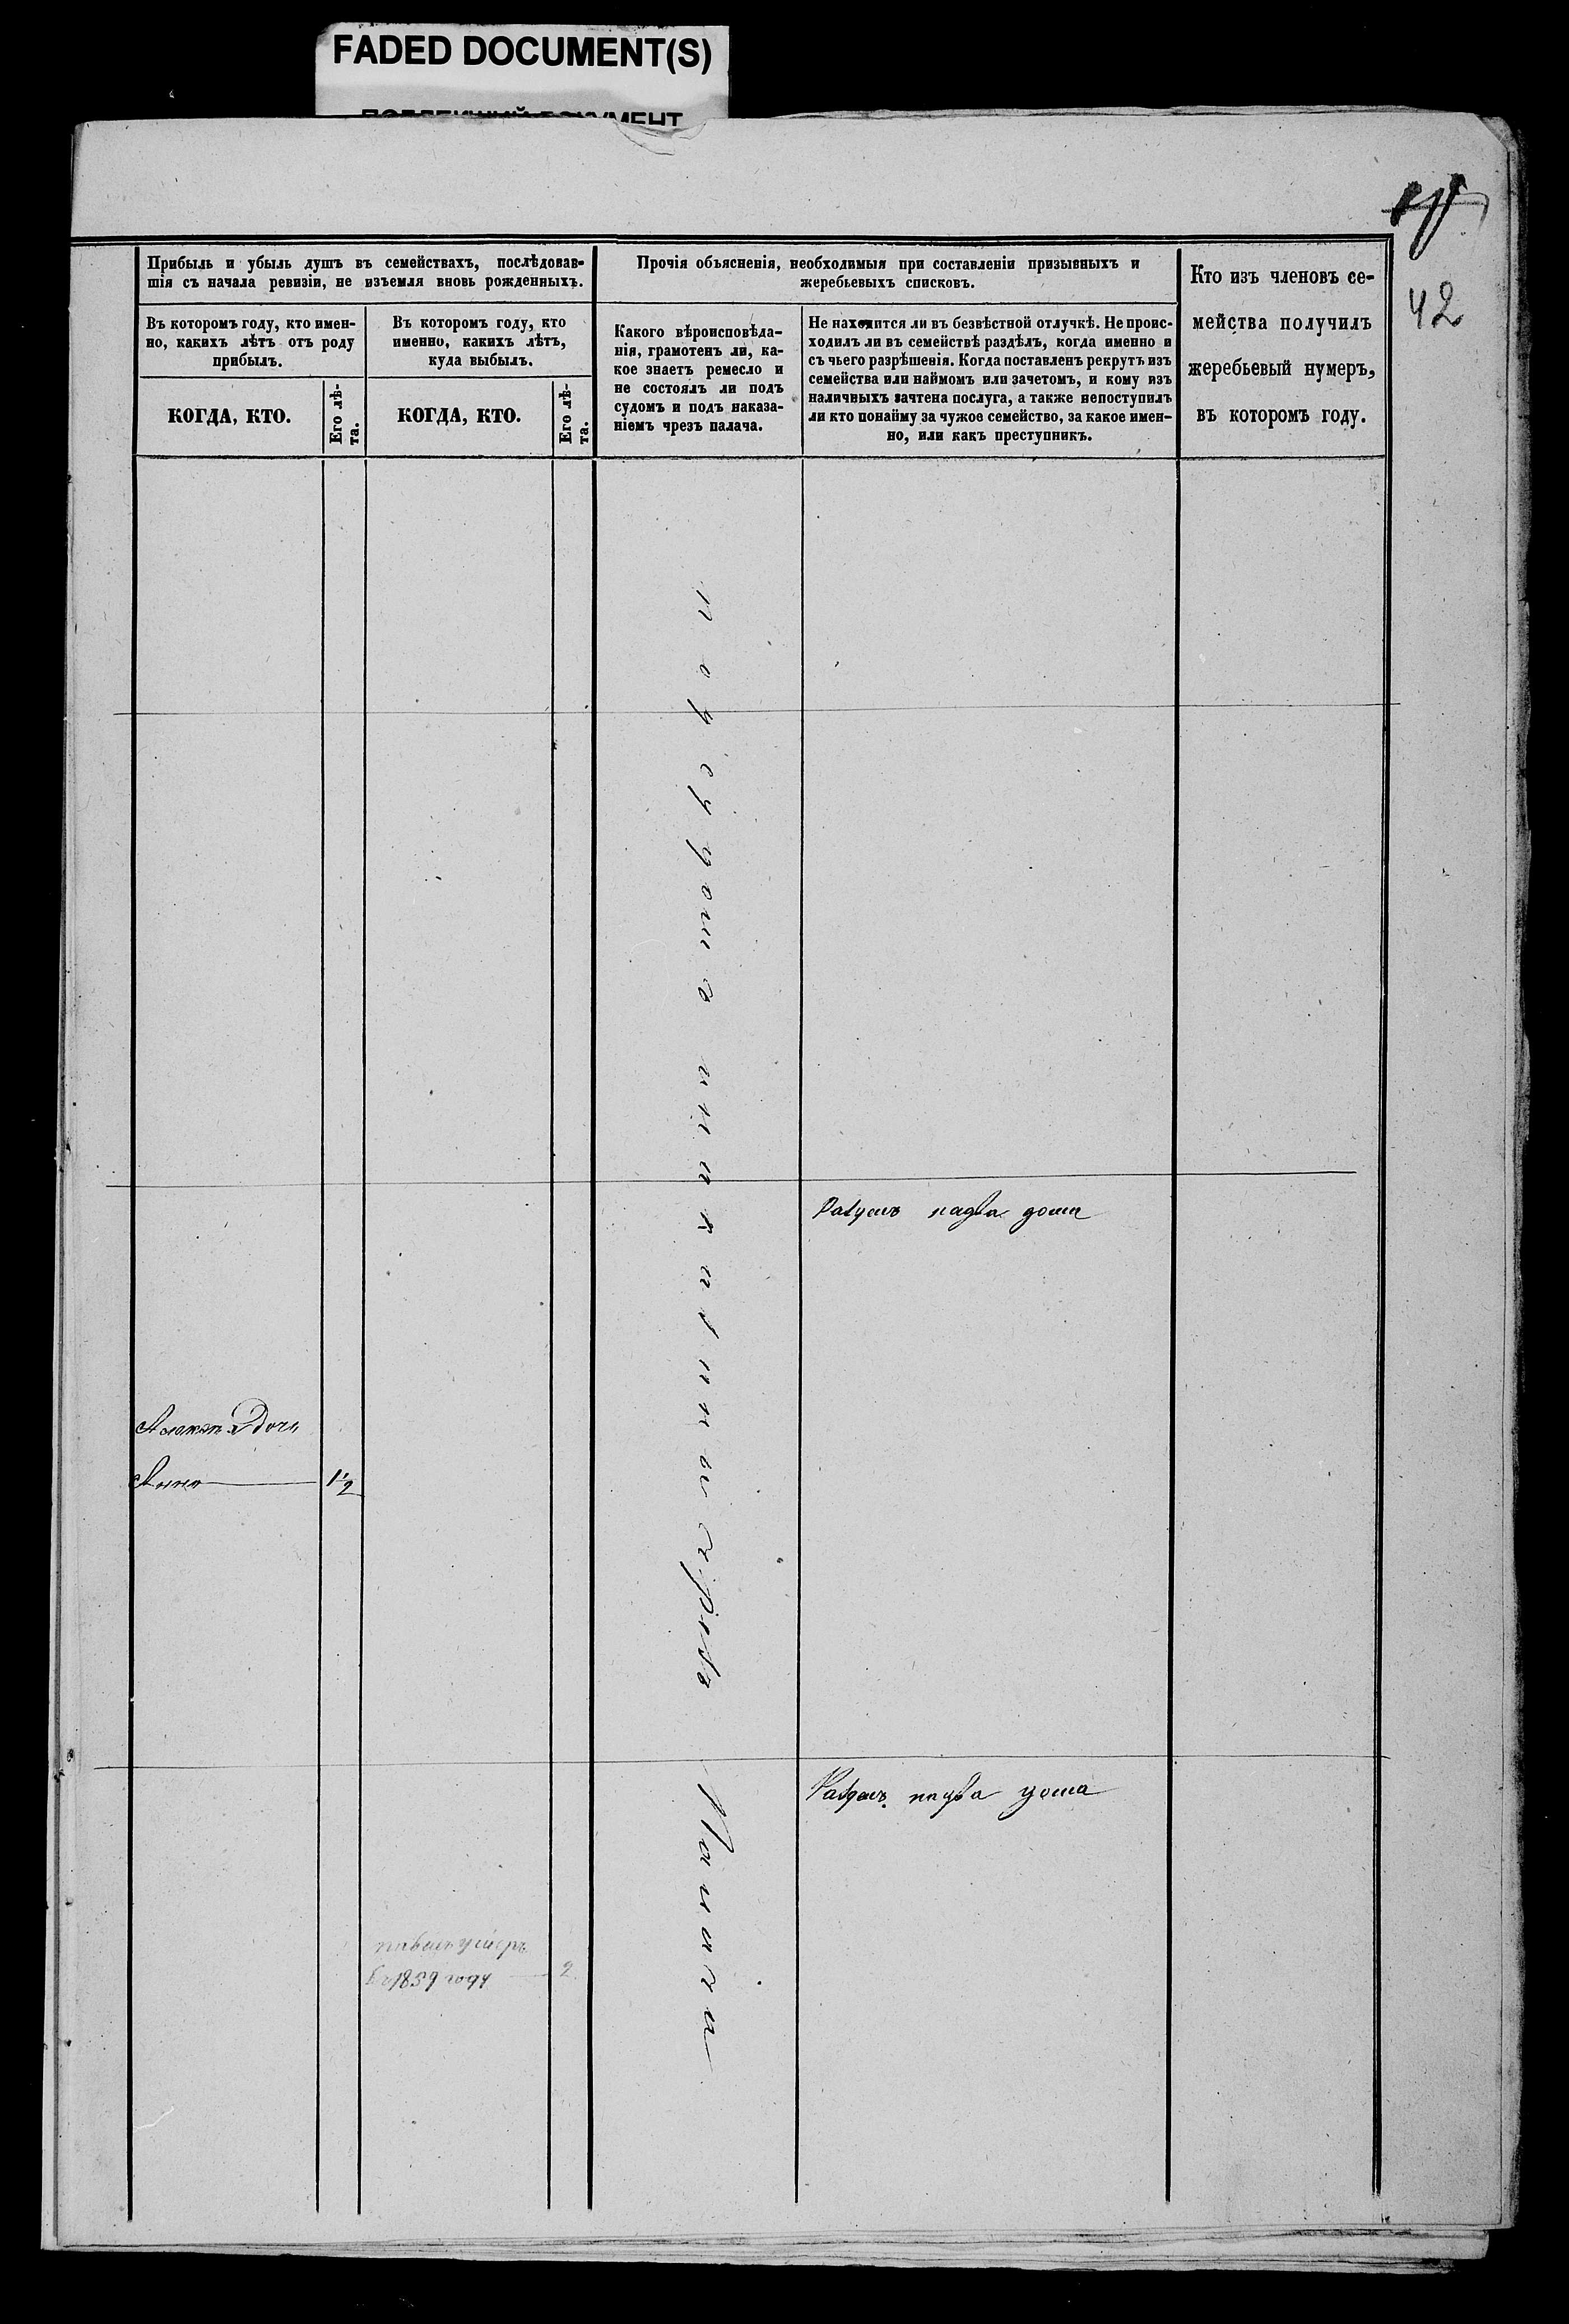 FADED DOCUMENT(S)
42
Прибыль и убыль душъ въ семействахъ, послѣдовав-
шія съ начала ревизіи, не изъемля вновь рожденныхъ.
Прочія объясненія, необходимыя при составленіи призывныхъ и
жеребьевыхъ списковъ.
Кто изъ членовъ се-
мейства получилъ
жеребьевый нумеръ,
въ которомъ году.
Въ которомъ году, кто имен-
но, какихъ лѣтъ отъ роду
прибылъ.
Въ которомъ году, кто
именно, какихъ лѣтъ,
куда выбылъ.
Какого вѣроисповѣда-
нія, грамотенъ ли, ка-
кое знаетъ ремесло и
не состоялъ ли подъ
судомъ и подъ наказа-
ніемъ чрезъ палача.
Не находится ли въ безвѣстной отлучкѣ. Не проис-
ходилъ ли въ семействѣ раздѣлъ, когда именно и
съ чьего разрѣшенія. Когда поставленъ рекрутъ изъ
семейства или наймомъ или зачетомъ, и кому изъ
наличныхъ зачтена послуга, а также непоступилъ
ли кто понайму за чужое семейство, за какое имен-
но, или какъ преступникъ.
КОГДА, КТО.
Его лѣ-
та.
КОГДА, КТО.
Его лѣ-
та.
надва дома
Дочь
Анна 1 1/2
надва дома
1856 году 2